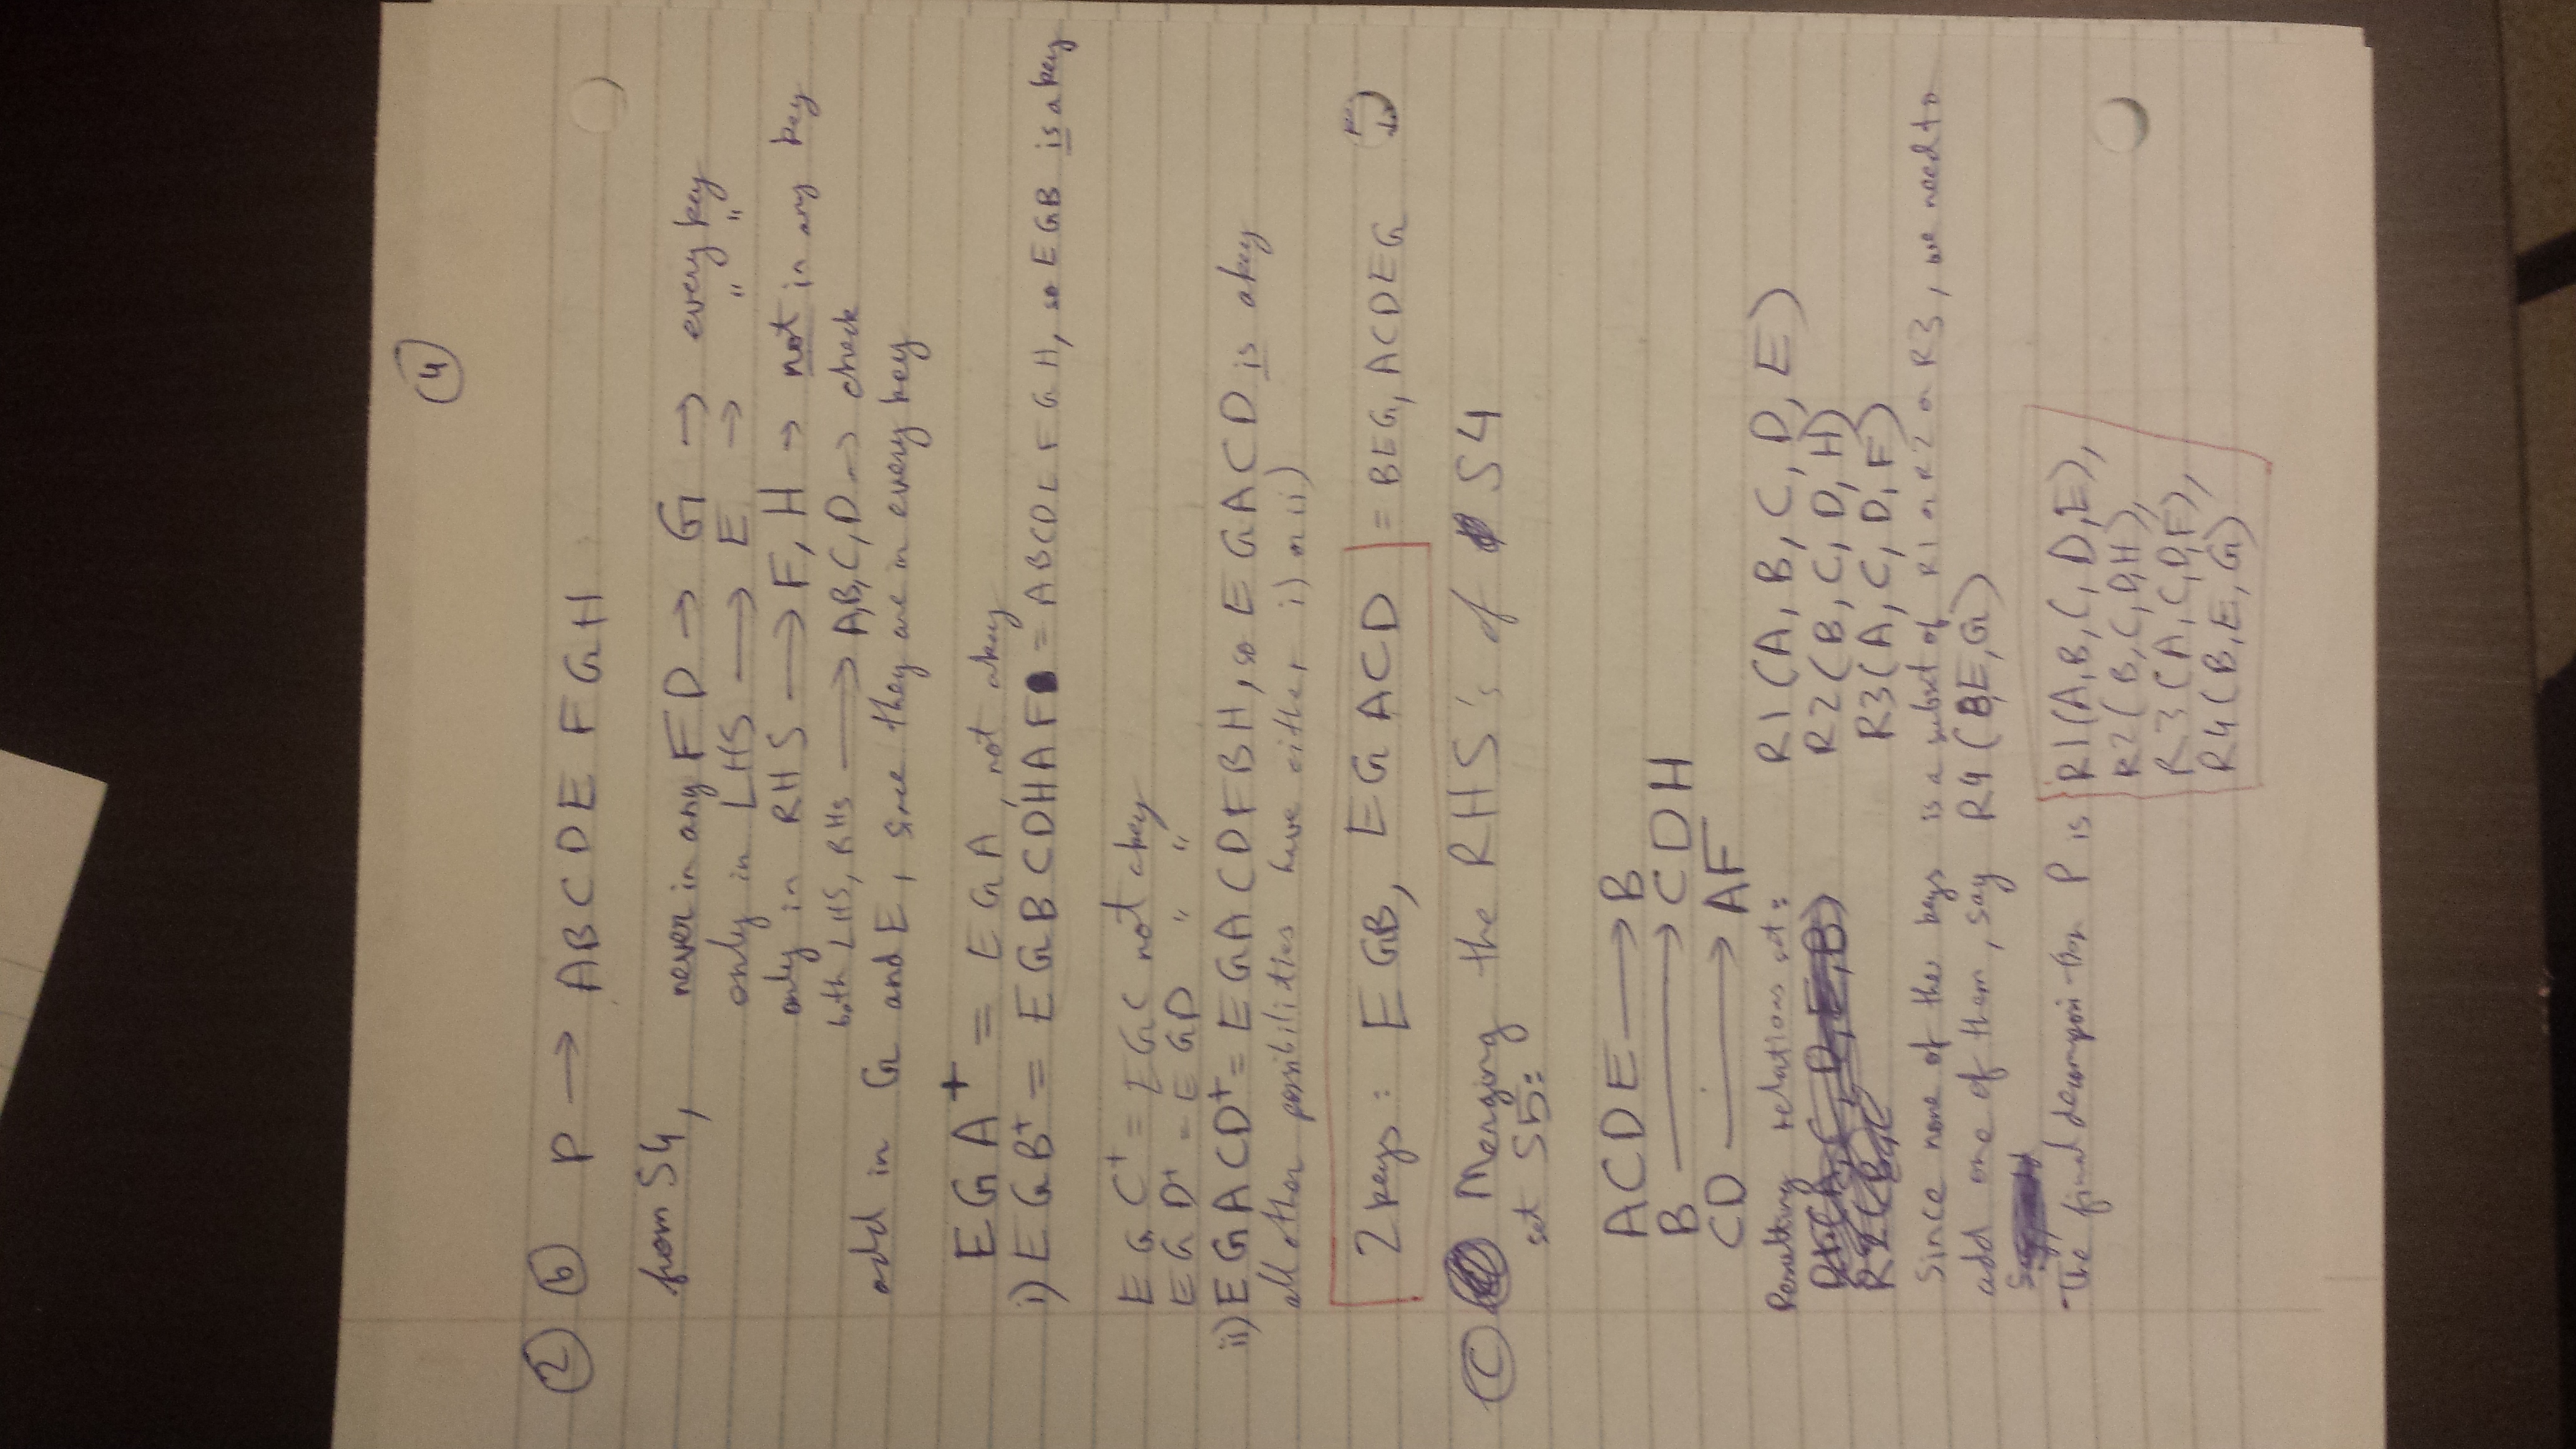 4
2 b P → ABCDEFGH
from S4, never in any FD → G → every key
only in LHS → E → " "
only in RHS → F, H → not in any key
both LHS, RHS → A,B,C,D → check
add in G and E, since they are in every key
EGA+ = EGA, not a key
i) EGB+ = EGBCDHAF = ABCDEFGH, so EGB is a key
EGC+ = EGC not a key
EGD+ = EGD " "
ii) EGACD+ = EGACDFBH, so EGACD is a key
all other possibilities have either i) or ii)
2 keys: EGB, EGACD = BEG, ACDEG
c Merging the RHS's of S4
set S5:
ACDE → B
B → CDH
CD → AF
Resulting relations set: R1(A, B, C, D, E)
R1(A, C, D, E, B) R2(B, C, D, H)
R2(B, C R3(A, C, D, F)
Since none of the keys is a subset of R1 or R2 or R3, we need to
add one of them, say R4(B,E,G)
The final decomposition P is R1(A,B,C,D,E),
R2(B,C,D,H),
R3(A,C,D,F),
R4(B,E,G)